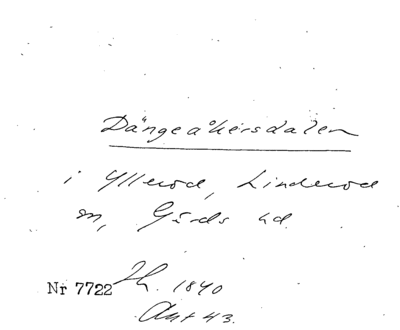 Dängeåkersdalen
i Ylleröd, Linderöd
sn, Gärds hd.
Nr 7722 Th. 1840
Ant 43.